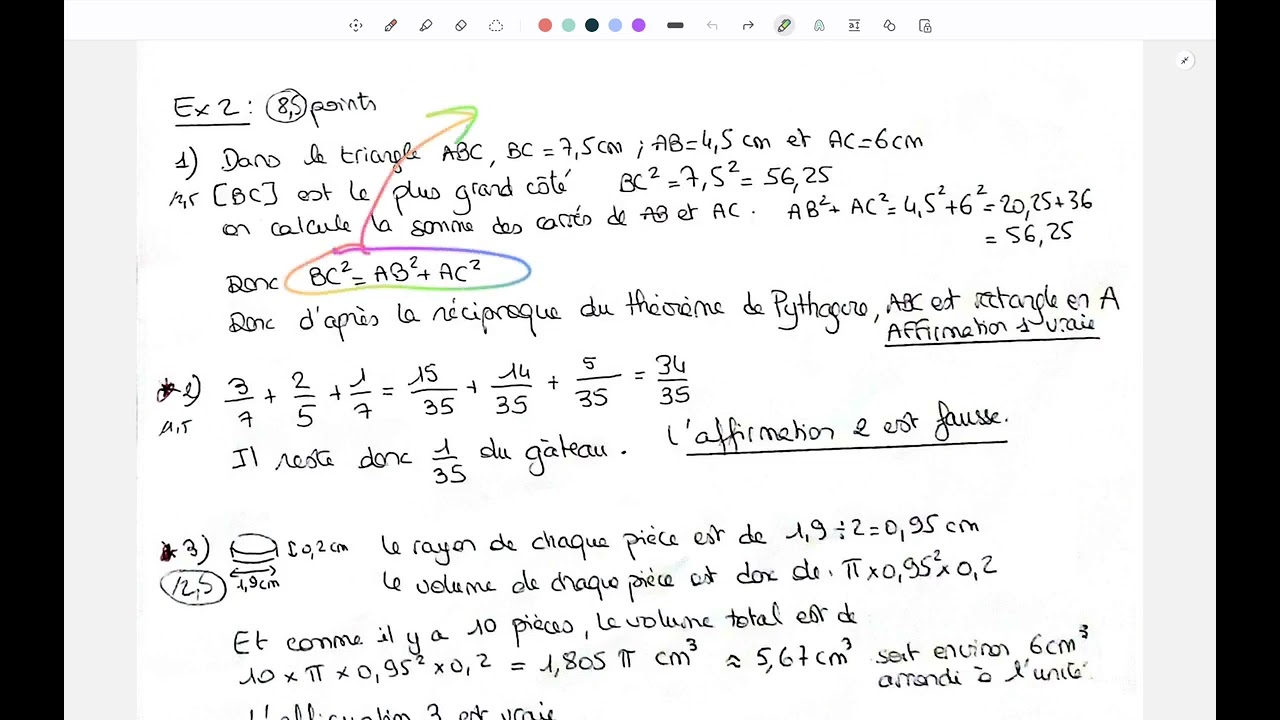 Ex 2 : 8,5 points
1) Dans le triangle ABC, BC = 7,5 cm ; AB = 4,5 cm et AC = 6 cm
[BC] est le plus grand côté BC² = 7,5² = 56,25
on calcule la somme des carrés de AB et AC. AB² + AC² = 4,5² + 6² = 20,25 + 36
= 56,25
Donc BC² = AB² + AC²
Donc d'après la réciproque du théorème de Pythagore, ABC est rectangle en A
Affirmation 1 vraie
2) 3/7 + 2/5 + 1/7 = 15/35 + 14/35 + 5/35 = 34/35
/1,5
Il reste donc 1/35 du gâteau. L'affirmation 2 est fausse.
3) 0,2 cm le rayon de chaque pièce est de 1,9 ÷ 2 = 0,95 cm
/2,5 1,9 cm le volume de chaque pièce est donc de π × 0,95² × 0,2
Et comme il y a 10 pièces, le volume total est de
10 × π × 0,95² × 0,2 = 1,805 π cm³ ≈ 5,67 cm³ soit environ 6 cm³
arrondi à l'unité.
L'affirmation 3 est vraie